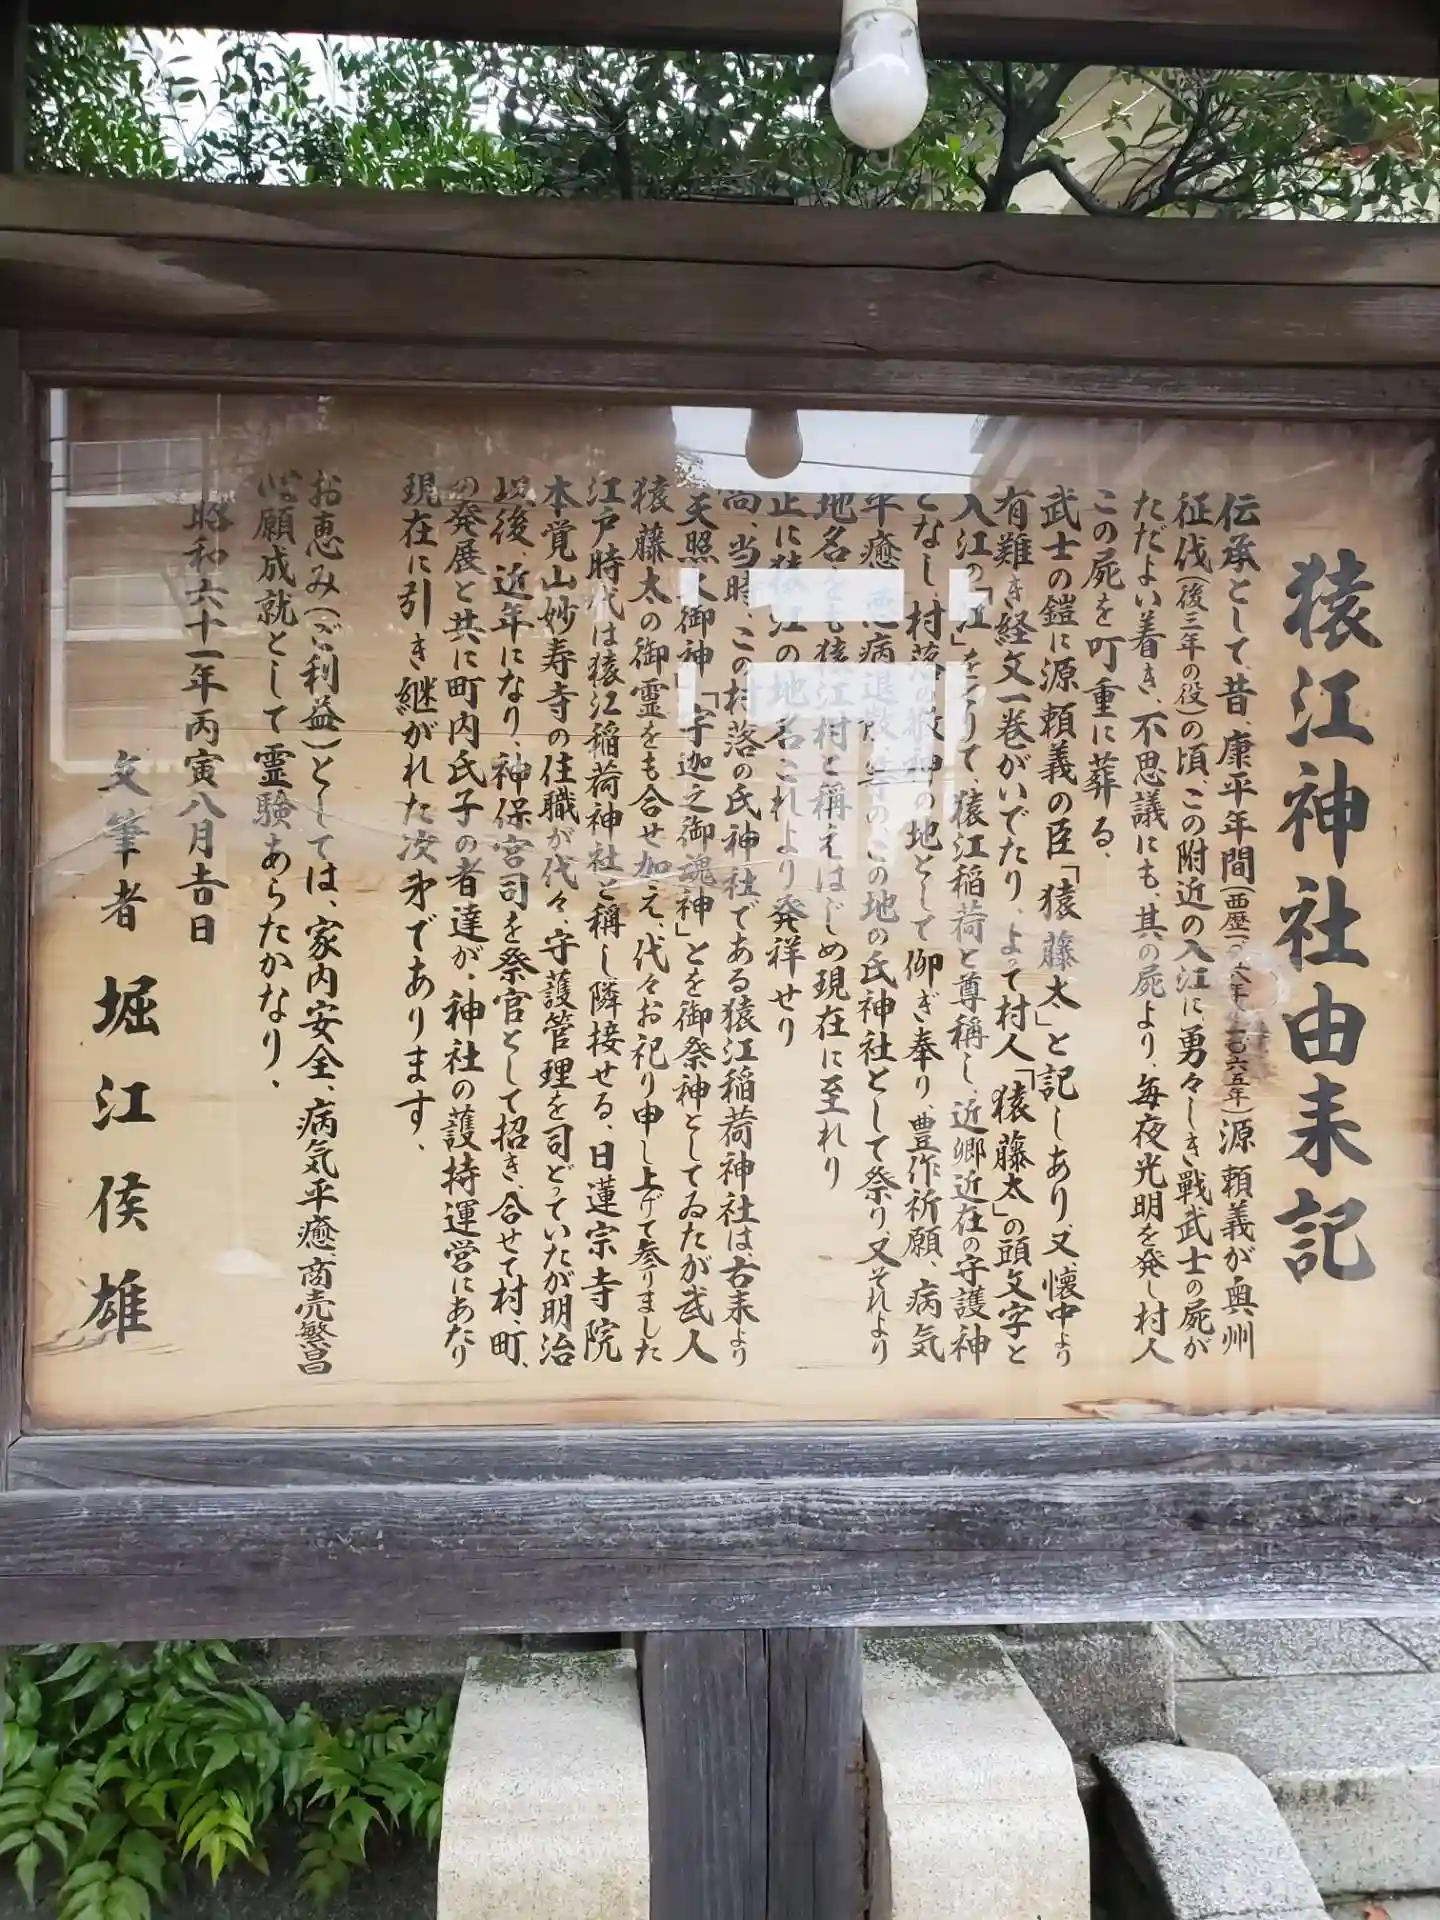 猿江神社由来記
伝承として、昔、康平年間(西歴一〇六年〜一〇六五年)源頼義が奥州
征伐(後三年の役)の頃、この附近の入江に勇々しき戦武士の屍が
ただよい着き、不思議にも、其の屍より、毎夜光明を発し村人
この屍を叮重に葬る、
武士の鎧に源頼義の臣「猿藤太」と記しあり、又、懐中より
有難き経文一巻がいでたり、よって村人「猿藤太」の頭文字と
入江の「江」をとりて、猿江稲荷と尊稱し、近郷近在の守護神
となし、村落の敬神の地として仰ぎ奉り、豊作祈願、病気
平癒、悪病退散、等の、この地の氏神社として祭り、又それより
地名をも猿江村と稱えはじめ現在に至れり
正に猿江の地名これより発祥せり
尚、当時、この村落の氏神社である猿江稲荷神社は、古来より
「天照大御神」「宇迦之御魂神」とを御祭神としてゐたが武人
猿藤太の御霊をも合せ加え、代々お祀り申し上げて参りました
江戸時代は猿江稲荷神社と稱し隣接せる、日蓮宗寺院
本覚山妙寿寺の住職が代々、守護管理を司どっていたが明治
以後、近年になり、神保宮司を祭官として招き、合せて村、町、
の発展と共に町内氏子の者達が、神社の護持運営にあたり
現在に引き継がれた次第であります、
お恵み(ご利益)としては、家内安全、病気平癒、商売繁昌
心願成就として霊験あらたかなり、
昭和六十一年丙寅八月吉日
文筆者 堀江侯雄